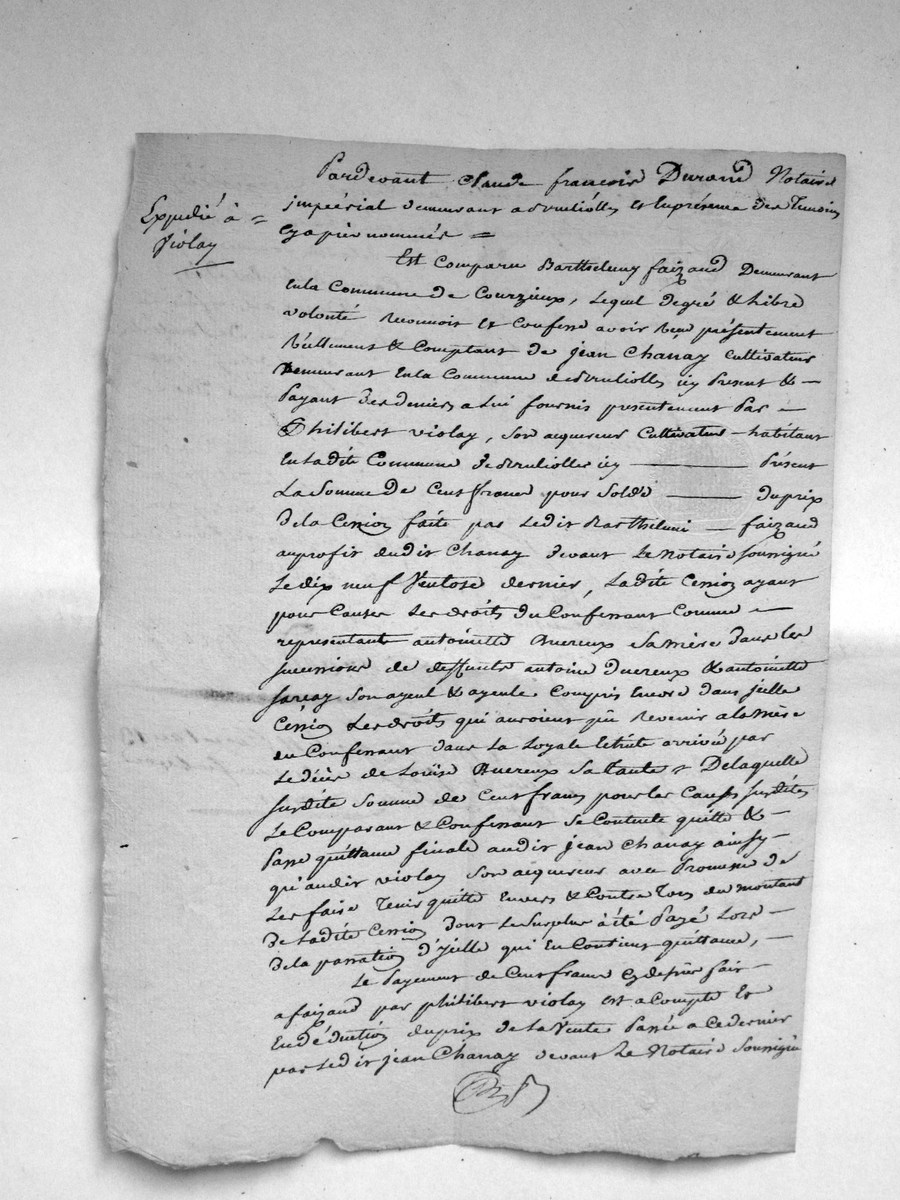 Expédié à =
Violay
Pardevant Claude françois Durand Notaire
impéérial demeurant a Brulliolles et En présence des Temoins
Cy après nommés =
Est Comparu Barthelemy faizand Demeurant
En la Commune de Courzieux, Lequel de gré & Libre
volonté reconnois et Confesse avoir reçu présentement
Réellement & Comptant de jean Chanay Cultivateur
Demeurant En la Commune de Brulliolles icy Présent & –
Payant des deniers a Lui fournis presentement Par –
Philibert violay, Son acquereur Cultivateur – habitant
En Ladite Commune de Brulliolles icy — Présent
La Somme De Cent francs pour Solde — du prix
De la Cession faite par Ledit Barthelemi – faizand
au profit dudit Chanay devant Le Notaire Soussigné
Le dix neuf Ventose dernier, Ladite Cession ayant
pour Causes Les droits du Confessant Comme –
representant antoinette Duereux Sa Mère dans les
successions de deffunts antoine Duereux & antoinette
Sarcay Son ayeul & ayeule Compris Encore dans jcelle
Cession Les droits qui auroient pû Revenir a la Mère
du Confessant dans La Loyale Echute arrivée par
Le décès de Loüise Duereux Sa tante = De laquelle
Susdite Somme de Cent francs pour les Causes Susdites
Le Comparant & Confessant Se Contente quitte &–
Passe quittance finale audit jean Chanay ainsy –
qu'audit violay Son acquereur avec Promesse de
Les faire Tenir quitte Envers & Contre Tous du montant
De Ladite Cession dont Le Surplus a été Payé Lors –
De la passation d'jcelle qui En Contient quittance, –
Le Payement de Cent francs cy dessus fait –
a faizand par philibert violay est a Compte Et
En déduction du prix de La Vente Passée a Ce dernier
par Ledit jean Chanay devant Le Notaire Soussigné